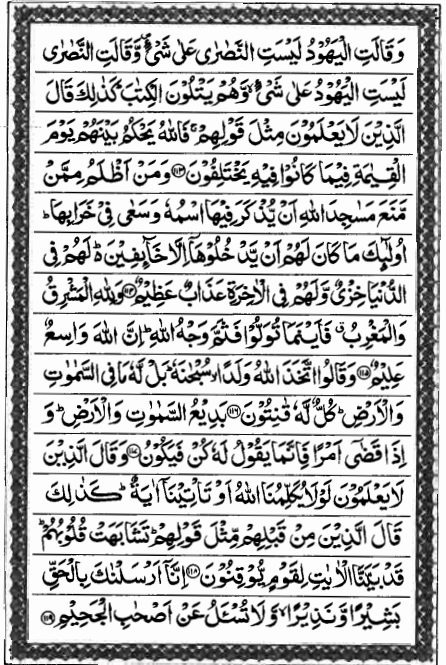 وَقَالَتِ الْيَهُوْدُ لَيْسَتِ النَّصٰرٰى عَلٰى شَىْءٍ ۪ وَّقَالَتِ النَّصٰرٰى
لَيْسَتِ الْيَهُوْدُ عَلٰى شَىْءٍ ۙ وَّهُمْ يَتْلُوْنَ الْكِتٰبَ ؕ كَذٰلِكَ قَالَ
الَّذِيْنَ لَا يَعْلَمُوْنَ مِثْلَ قَوْلِهِمْ ۚ فَاللّٰهُ يَحْكُمُ بَيْنَهُمْ يَوْمَ
الْقِيٰمَةِ فِيْمَا كَانُوْا فِيْهِ يَخْتَلِفُوْنَ ﴿۱۱۳﴾ وَمَنْ اَظْلَمُ مِمَّنْ
مَّنَعَ مَسٰجِدَ اللّٰهِ اَنْ يُّذْكَرَ فِيْهَا اسْمُهٗ وَسَعٰى فِىْ خَرَابِهَا ؕ
اُولٰٓئِكَ مَا كَانَ لَهُمْ اَنْ يَّدْخُلُوْهَاۤ اِلَّا خَآئِفِيْنَ ؕ۬ لَهُمْ فِى
الدُّنْيَا خِزْىٌ وَّلَهُمْ فِى الْاٰخِرَةِ عَذَابٌ عَظِيْمٌ ﴿۱۱۴﴾ وَلِلّٰهِ الْمَشْرِقُ
وَالْمَغْرِبُ ۗ فَاَيْنَمَا تُوَلُّوْا فَثَمَّ وَجْهُ اللّٰهِ ؕ اِنَّ اللّٰهَ وَاسِعٌ
عَلِيْمٌ ﴿۱۱۵﴾ وَقَالُوا اتَّخَذَ اللّٰهُ وَلَدًا ۙ سُبْحٰنَهٗ ؕ بَلْ لَّهٗ مَا فِى السَّمٰوٰتِ
وَالْاَرْضِ ؕ كُلٌّ لَّهٗ قٰنِتُوْنَ ﴿۱۱۶﴾ بَدِيْعُ السَّمٰوٰتِ وَالْاَرْضِ ؕ وَ
اِذَا قَضٰٓى اَمْرًا فَاِنَّمَا يَقُوْلُ لَهٗ كُنْ فَيَكُوْنُ ﴿۱۱۷﴾ وَقَالَ الَّذِيْنَ
لَا يَعْلَمُوْنَ لَوْلَا يُكَلِّمُنَا اللّٰهُ اَوْ تَاْتِيْنَاۤ اٰيَةٌ ؕ كَذٰلِكَ
قَالَ الَّذِيْنَ مِنْ قَبْلِهِمْ مِّثْلَ قَوْلِهِمْ ؕ تَشَابَهَتْ قُلُوْبُهُمْ ؕ
قَدْ بَيَّنَّا الْاٰيٰتِ لِقَوْمٍ يُّوْقِنُوْنَ ﴿۱۱۸﴾ اِنَّاۤ اَرْسَلْنٰكَ بِالْحَقِّ
بَشِيْرًا وَّنَذِيْرًا ۙ وَّلَا تُسْئَلُ عَنْ اَصْحٰبِ الْجَحِيْمِ ﴿۱۱۹﴾